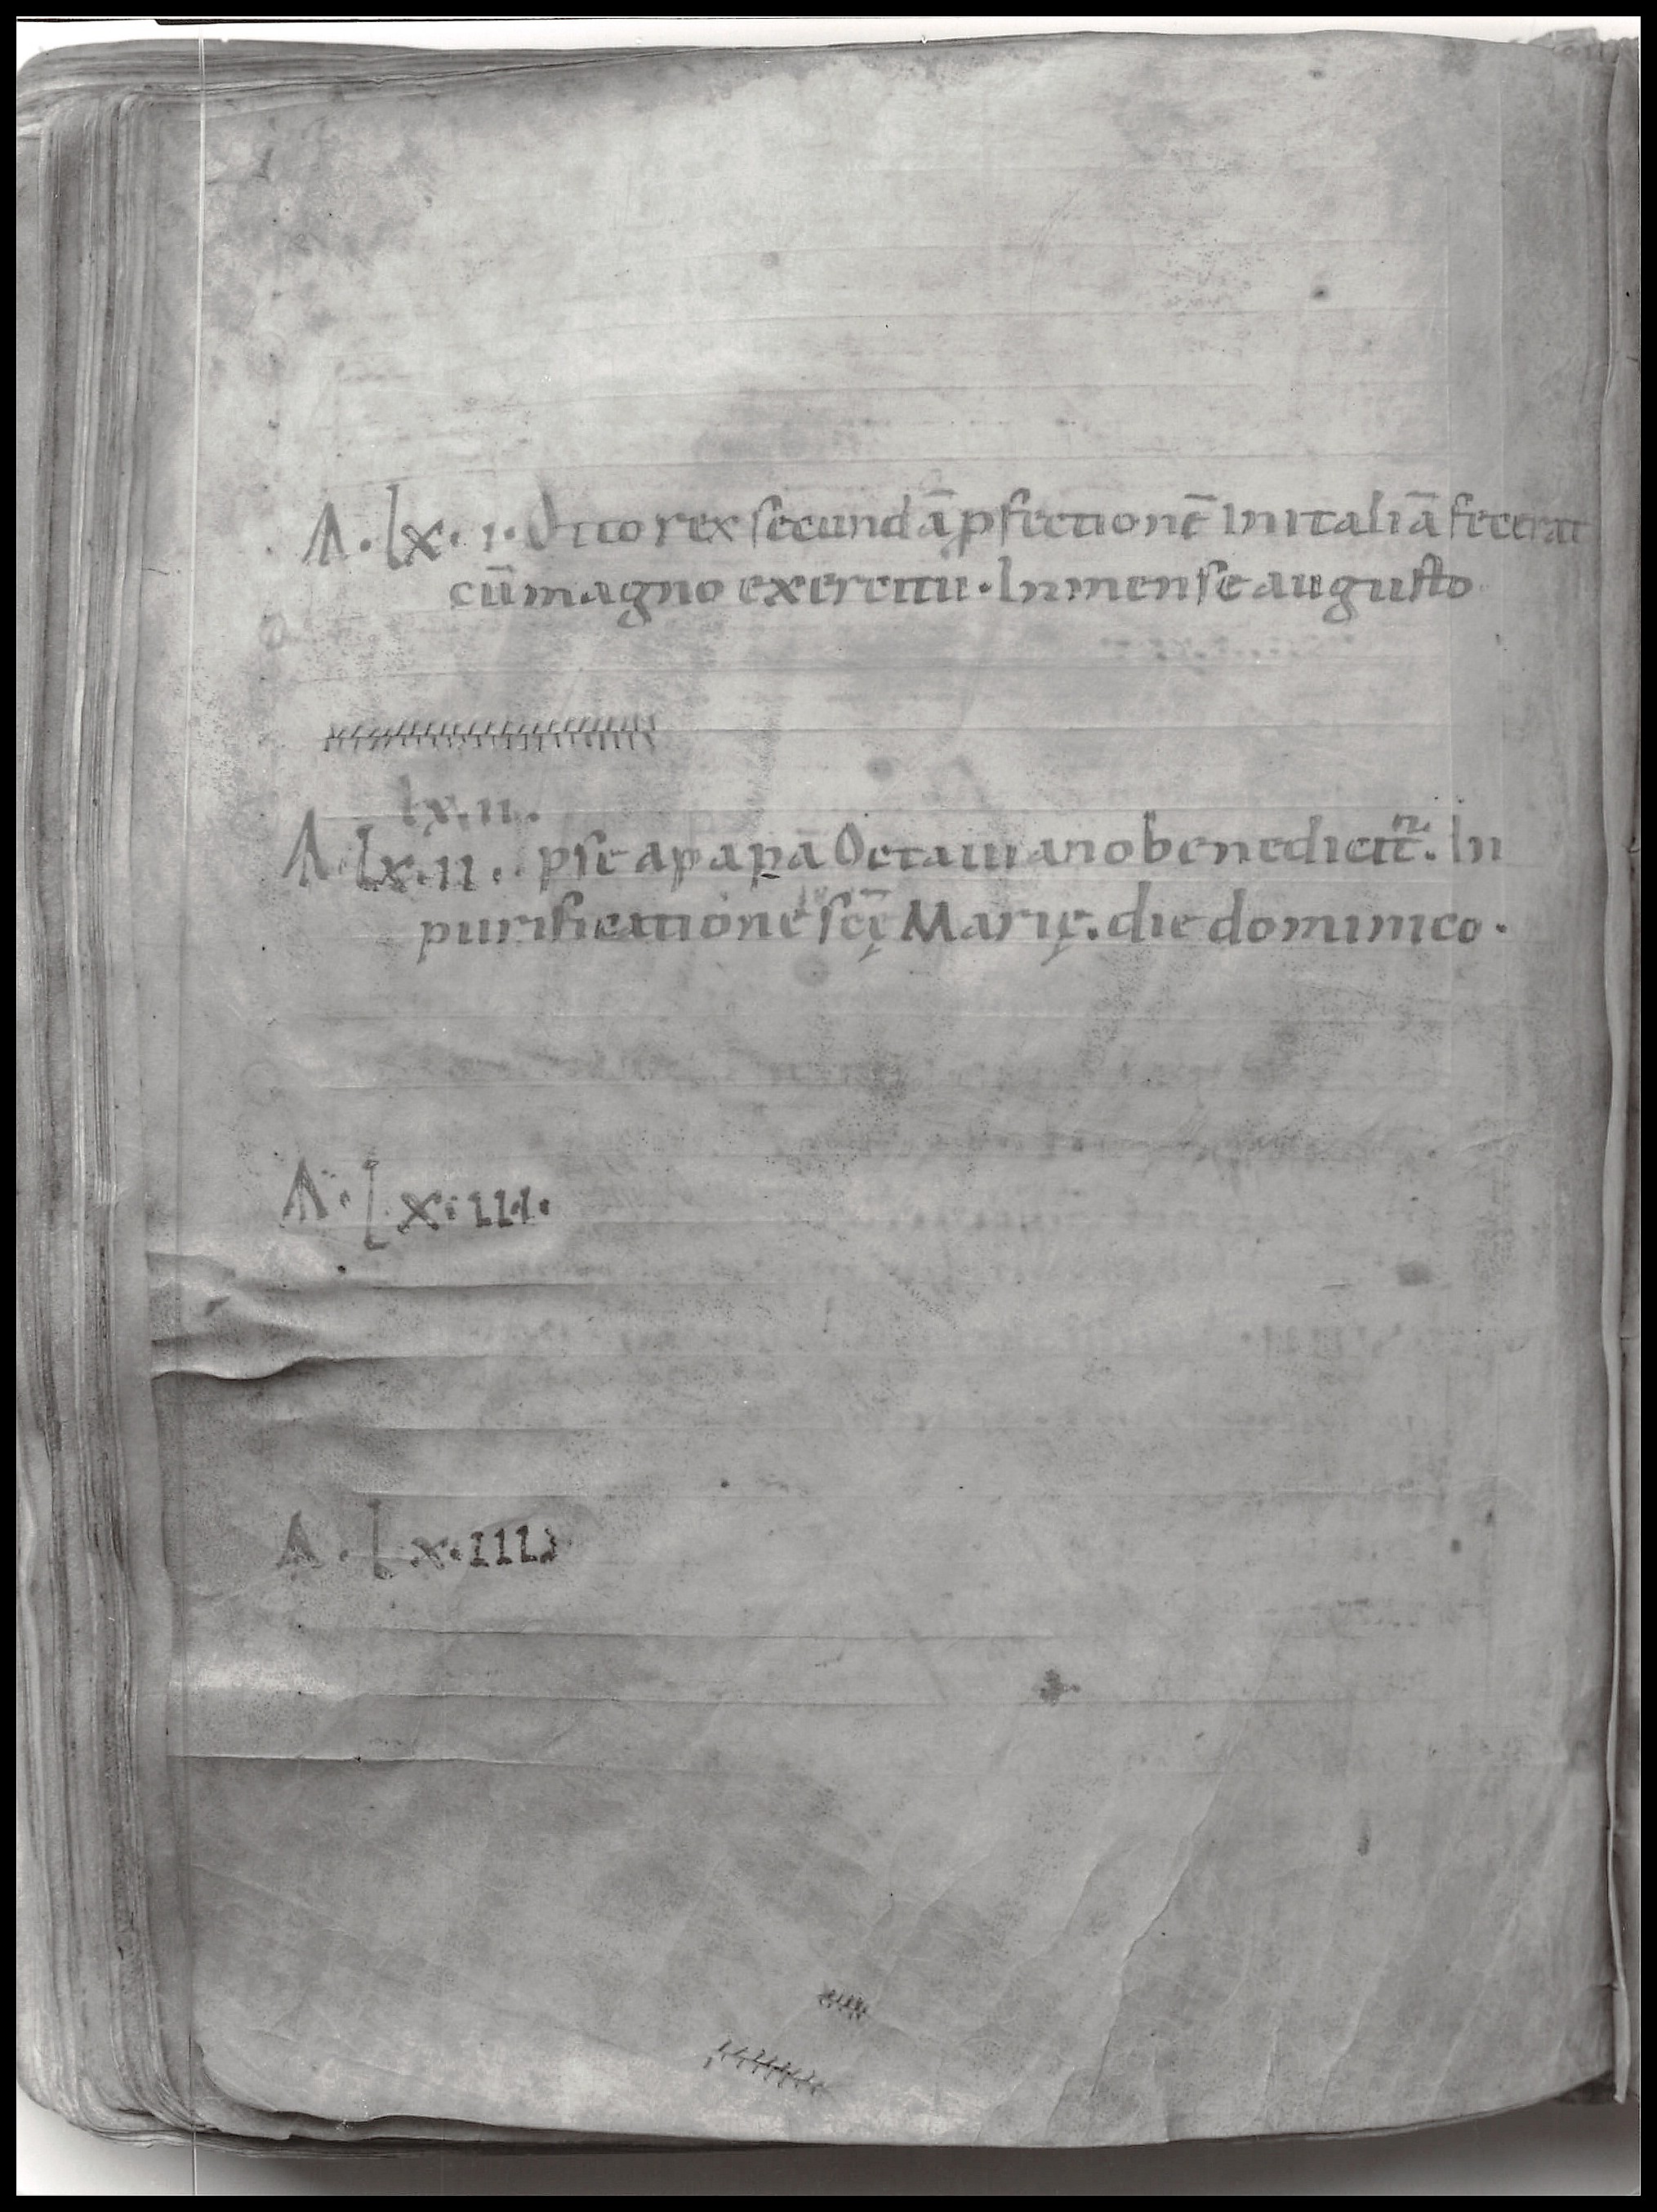 A. lx. i. Otto rex secundā pfectionē in italiā fecerat
cū magno exercitu. In mense augusto
lx.ii.
A. lx.ii. pse a papā Octauiano benedicit̄. In
purificatione scę̄ Marię. die dominico.
A. lx.iii.
A. lx.iiii